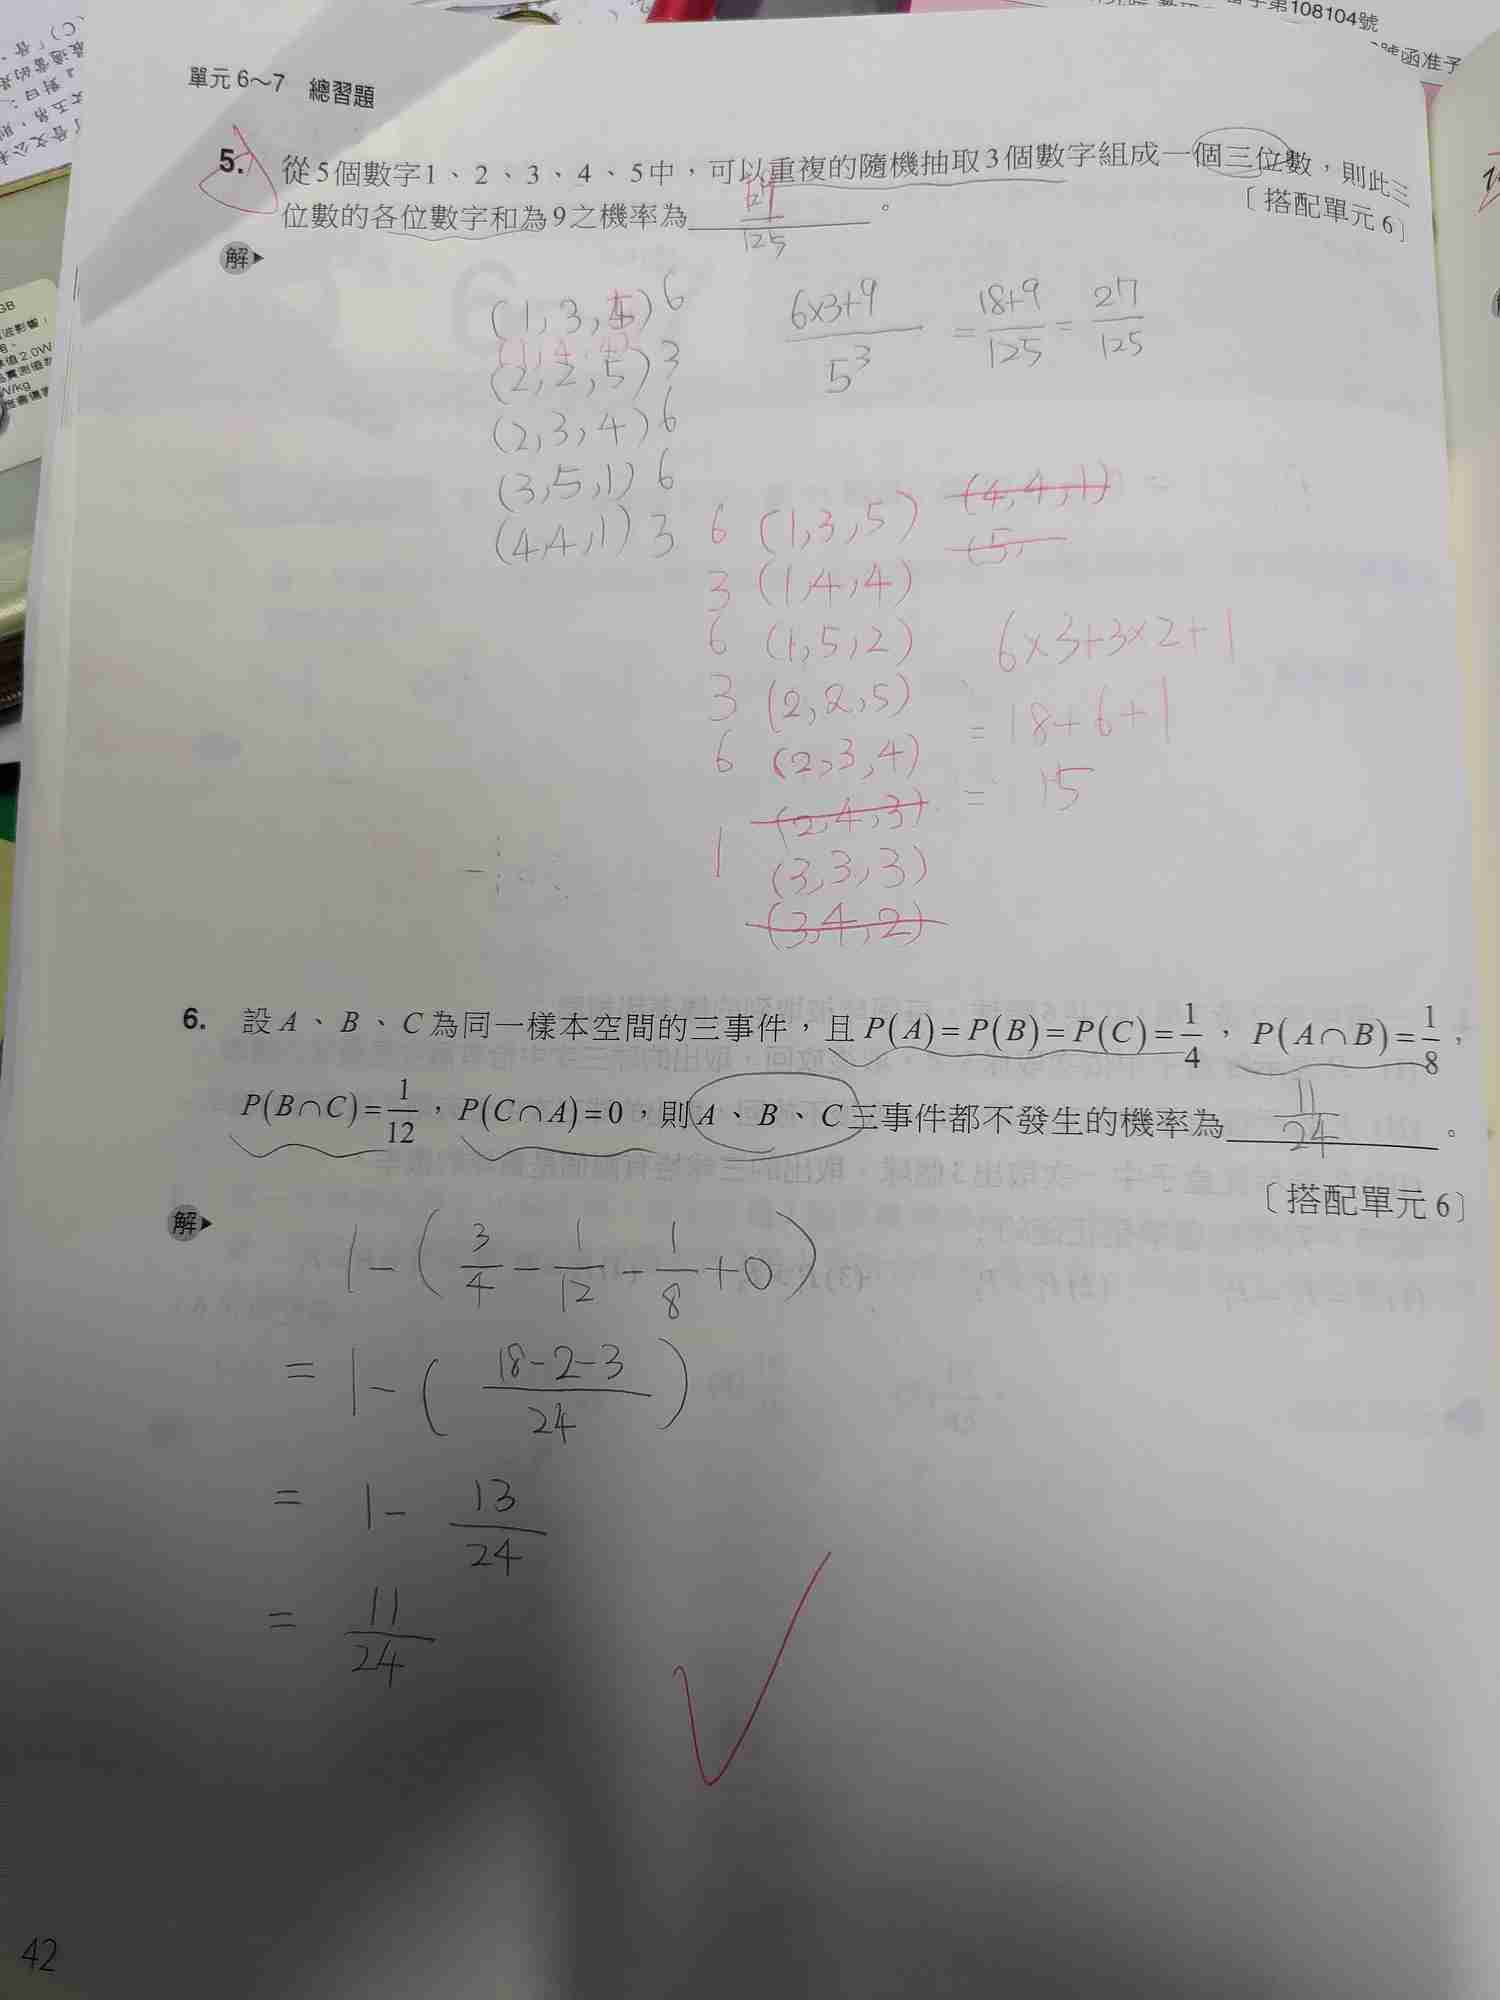 第108104號
號函准予
單元 6～7 總習題
5. 從5個數字1、2、3、4、5中，可以重複的隨機抽取3個數字組成一個三位數，則此三
位數的各位數字和為9之機率為
125
。
〔搭配單元 6〕
解
(1,3,5) 6
(2,2,5) 3
(2,3,4) 6
(3,5,1) 6
(4,4,1) 3
6×3+9 / 5³ = 18+9 / 125 = 27 / 125
6 (1,3,5) (4,4,1)
(5,
3 (1,4,4)
6 (1,5,2)
3 (2,2,5)
6 (2,3,4)
(2,4,3)
1 (3,3,3)
(3,4,2)
6×3+3×2+1
= 18+6+1
= 15
6. 設 A、B、C 為同一樣本空間的三事件，且 P(A)=P(B)=P(C)=1/4，P(A∩B)=1/8，
P(B∩C)=1/12，P(C∩A)=0，則 A、B、C 三事件都不發生的機率為 11/24 。
〔搭配單元 6〕
解
1-(3/4-1/12-1/8+0)
= 1-(18-2-3 / 24)
= 1-13/24
= 11/24
42